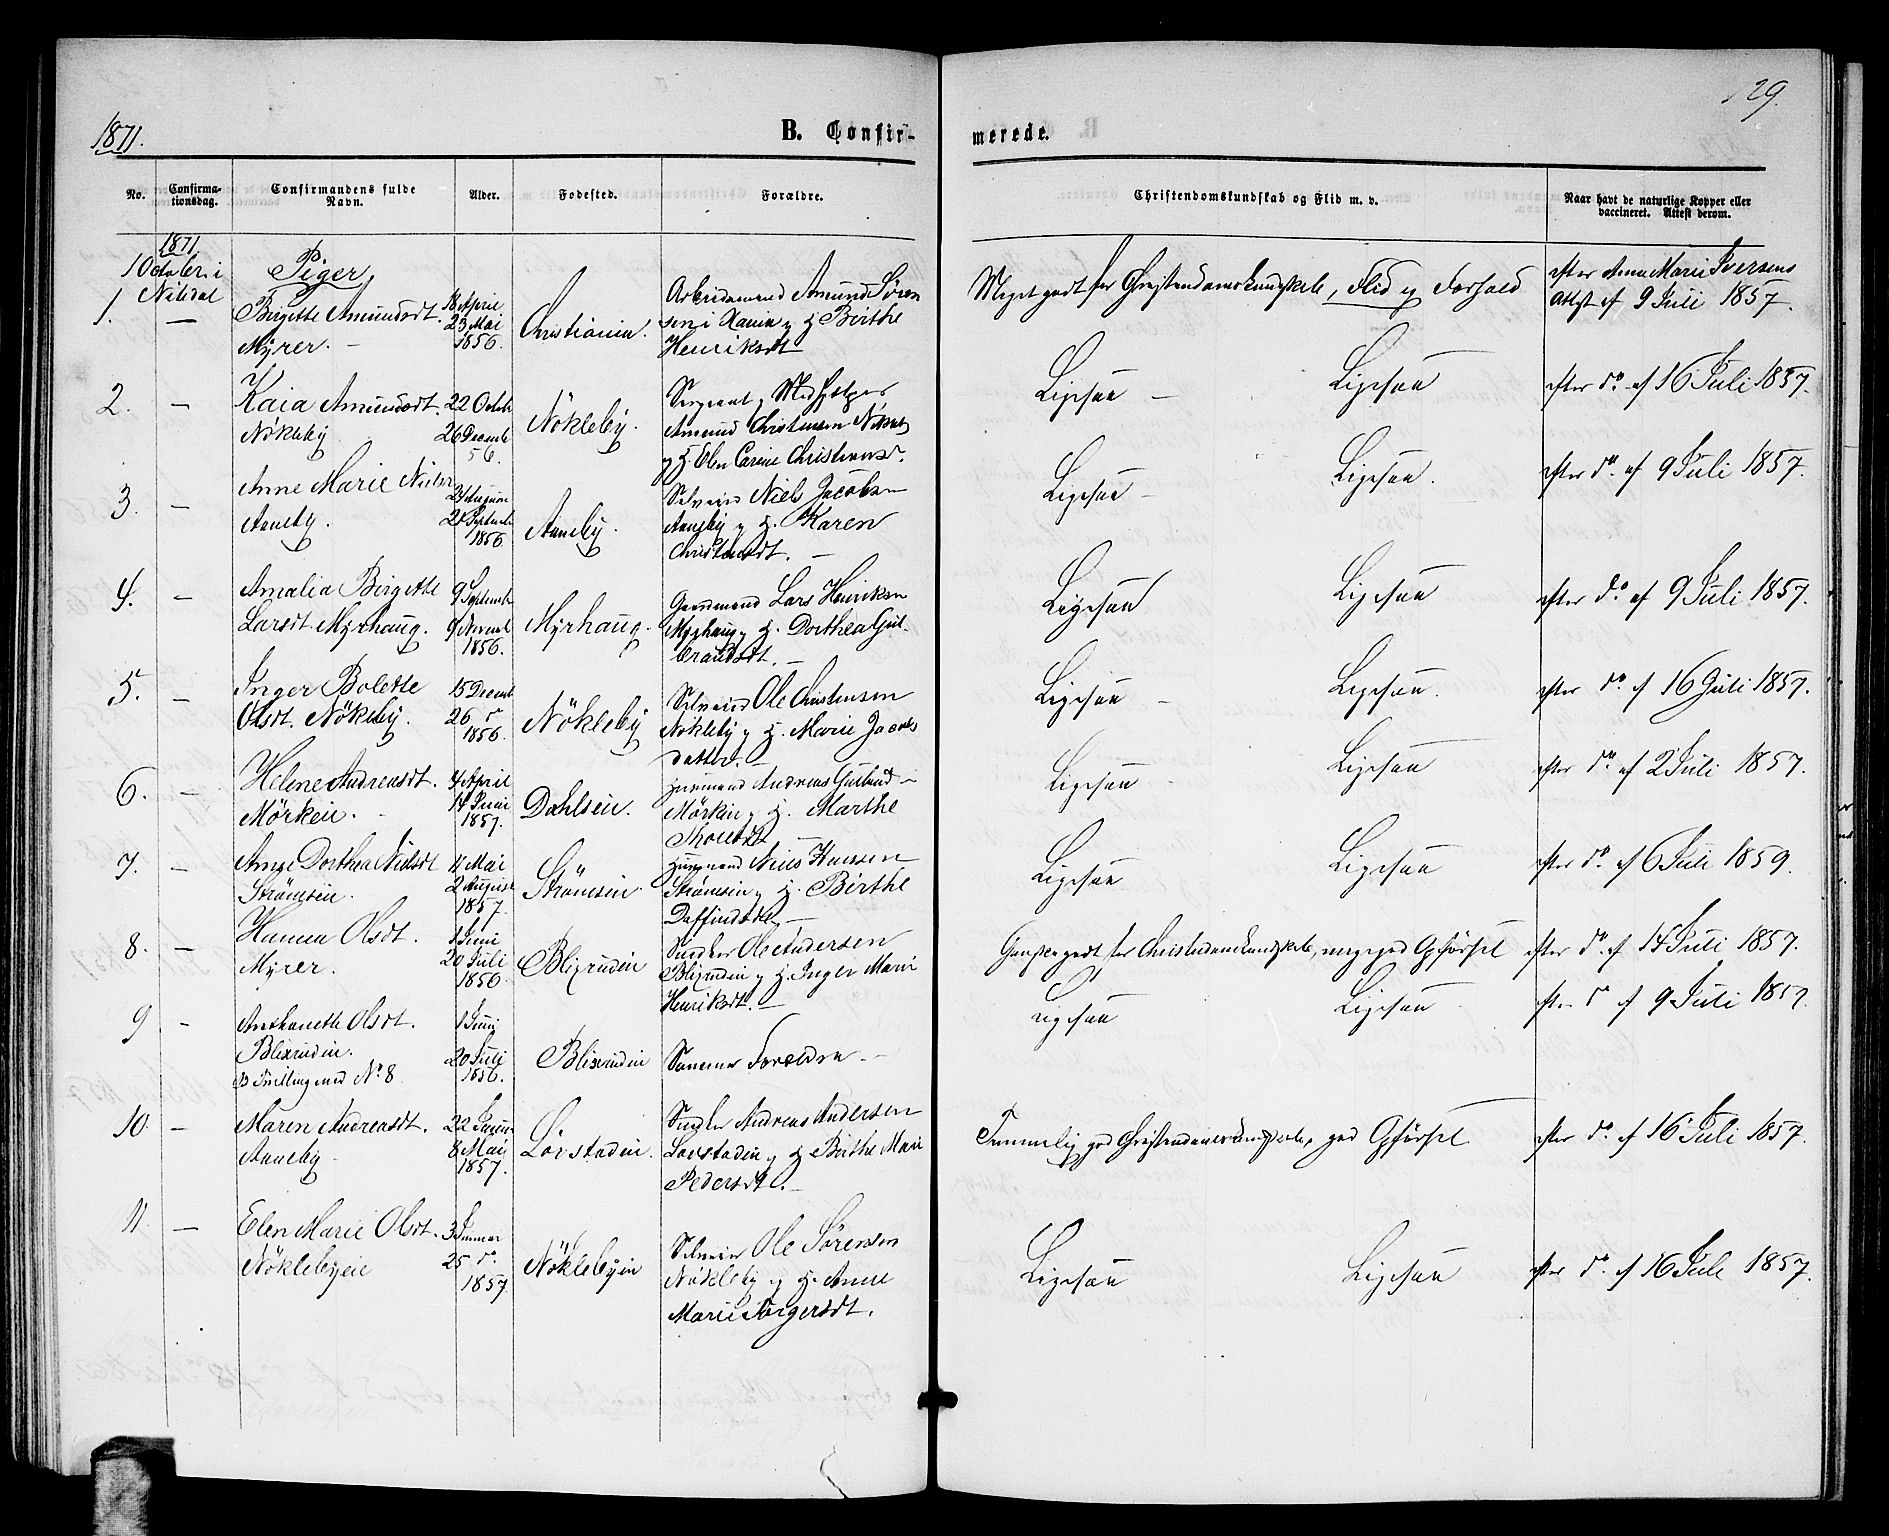 129.
1871.
B. Confir-
merede.
No.
Confirma-
tionsdag.
Confirmandens fulde
Navn.
Alder.
Fødested.
Forældre.
Christendomskundskab og Flid m. v.
Naar havt de naturlige Kopper eller
vaccineret. Attest derom.
1871.
1 October i
Nitedal
Piger.
1. — Birgitte Amundsdt.
Myrer. —
18 April
23 Mai
1856.
Christiania.
Arbeidsmand Amund Søren
sen i Xania og H. Berthe
Henriksdt
Meget godt for Christendomskundskab, Flid og Forhold
efter Anna Marie Iversens
Attest af 9 Juli 1857.
2. — Kaia Amundsdt.
Nökleby
22 Octob
26 Decemb
56.
Nökleby.
Sergeant og Medhjelper
Amund Christensen
og H. Elen Carine Christiansd.
Ligesaa — Ligesaa
efter do. af 16 Juli 1857.
3. — Anne Marie Nielsd
Aaneby.
1856
Aaneby.
Selveier Niels Jacobsen
Aaneby og H. Karen
Christensdt. —
Ligesaa — Ligesaa.
efter do. af 9 Juli 1857.
4. — Amalia Birgitte
Larsdt Myrhaug.
9 Septemb
9 Novemb
1856.
Myrhaug.
Gaardmand Lars Henriksen
Myrhaug og H. Dorthea Gul-
brandsdt. —
Ligesaa Ligesaa
efter do. af 9 Juli 1857.
5. — Inger Bolette
Olsdt. Nökleby.
15 Decemb
26 do
1856.
Nökleby
Selveier Ole Christensen
Nökleby og H. Marie Jacobs
datter. —
Ligesaa — Ligesaa.
efter do. af 16 Juli 1857.
6. — Helene Andreasdt.
Mörkeie. —
4 April
14 Juni
1857.
Dahlseie.
Huusmand Andreas
Mörkeie og H. Marthe
Ligesaa Ligesaa
efter do. af 2 Juli 1857.
7. — Anne Dorthea Nielsdt
Strömseie.
11 Mai
2 August
1857.
Strömseie.
Huusmand Niels Hansen
Strömseie og H. Berthe
Ligesaa Ligesaa
efter do. af 6 Juli 1859.
8. — Hanna Olsdt.
Myrer.
1 Juni
20 Juli
1856.
Blixrudeie
Ole Andersen
Blixrudeie og H. Inger Marie
Henriksdt. —
Ganske godt for Christendomskundskab, meget god Opførsel
efter do. af 14 Juli 1857.
9 - Anthonette Olsdt.
Blixrudeie.
Tvilling med No 8.
1 Juni
20 Juli
1856.
Blixrudeie
Samme Forældre. —
Ligesaa Ligesaa
efter do af 9 Juli 1857.
10. — Maren Andreasdt.
Aaneby
22 Januar
8 Maj
1857.
Lövstadeie.
Andreas Andersen
Lovstadeie og H Birthe Marie
Pedersdt. —
Temmelig god Christendomskundskab, god Opførsel
efter do. af 16 Juli 1857.
11. — Elen Marie Olsdt.
Nöklebyeie
3 Januar
25 do.
1857
Nöklebyeie
Selveier Ole Sørensen
Nökleby og H. Anne
Marie Torgersdt.
Ligesaa Ligesaa
efter do. af 16 Juli 1857.